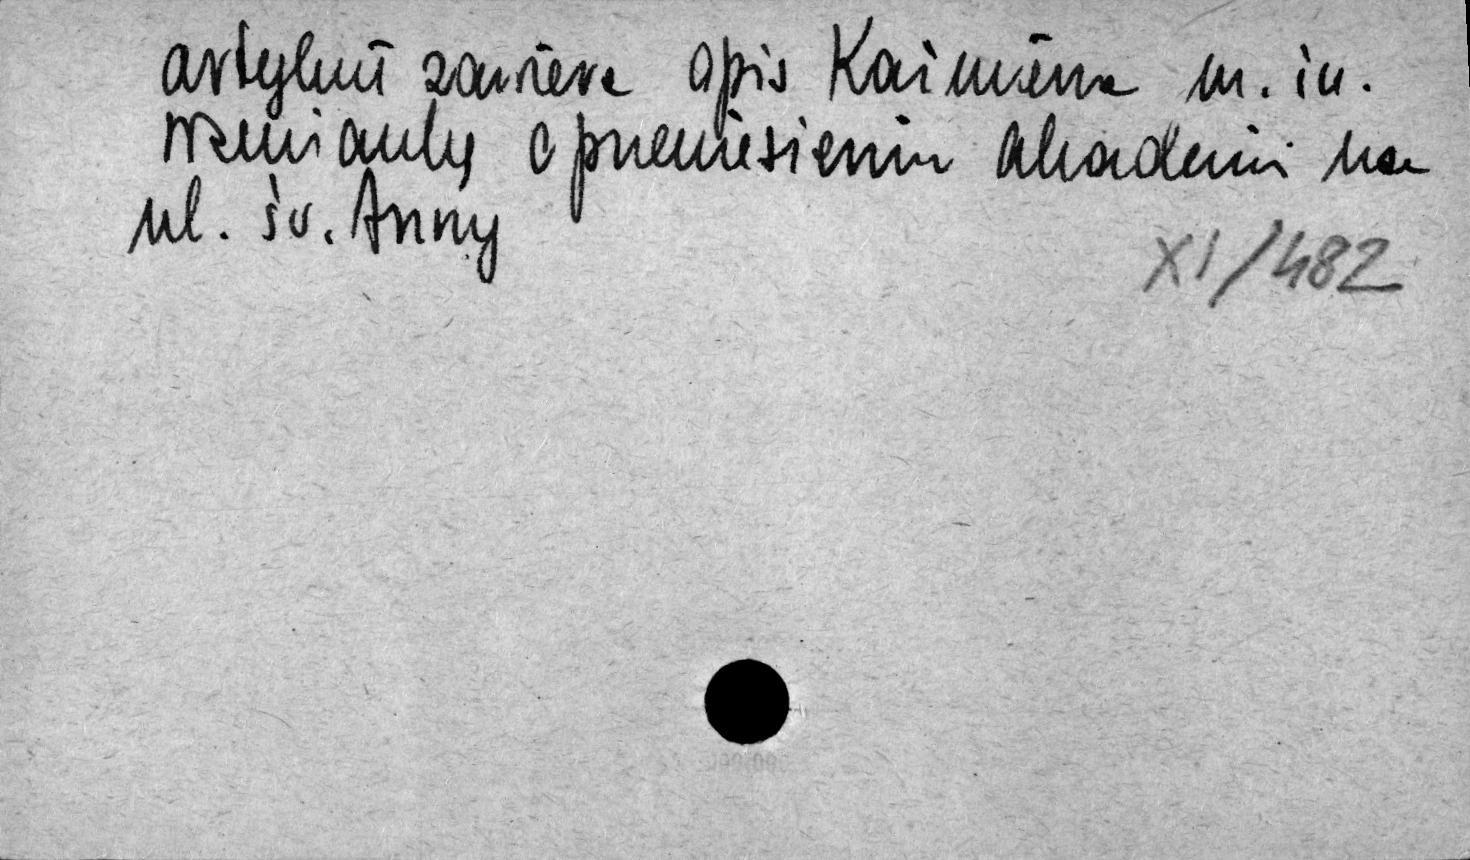 artykuł zawiera opis Kaimiena m. in.
wzmiankę o przeniesieniu Akademii na
ul. św. Anny
XI/482